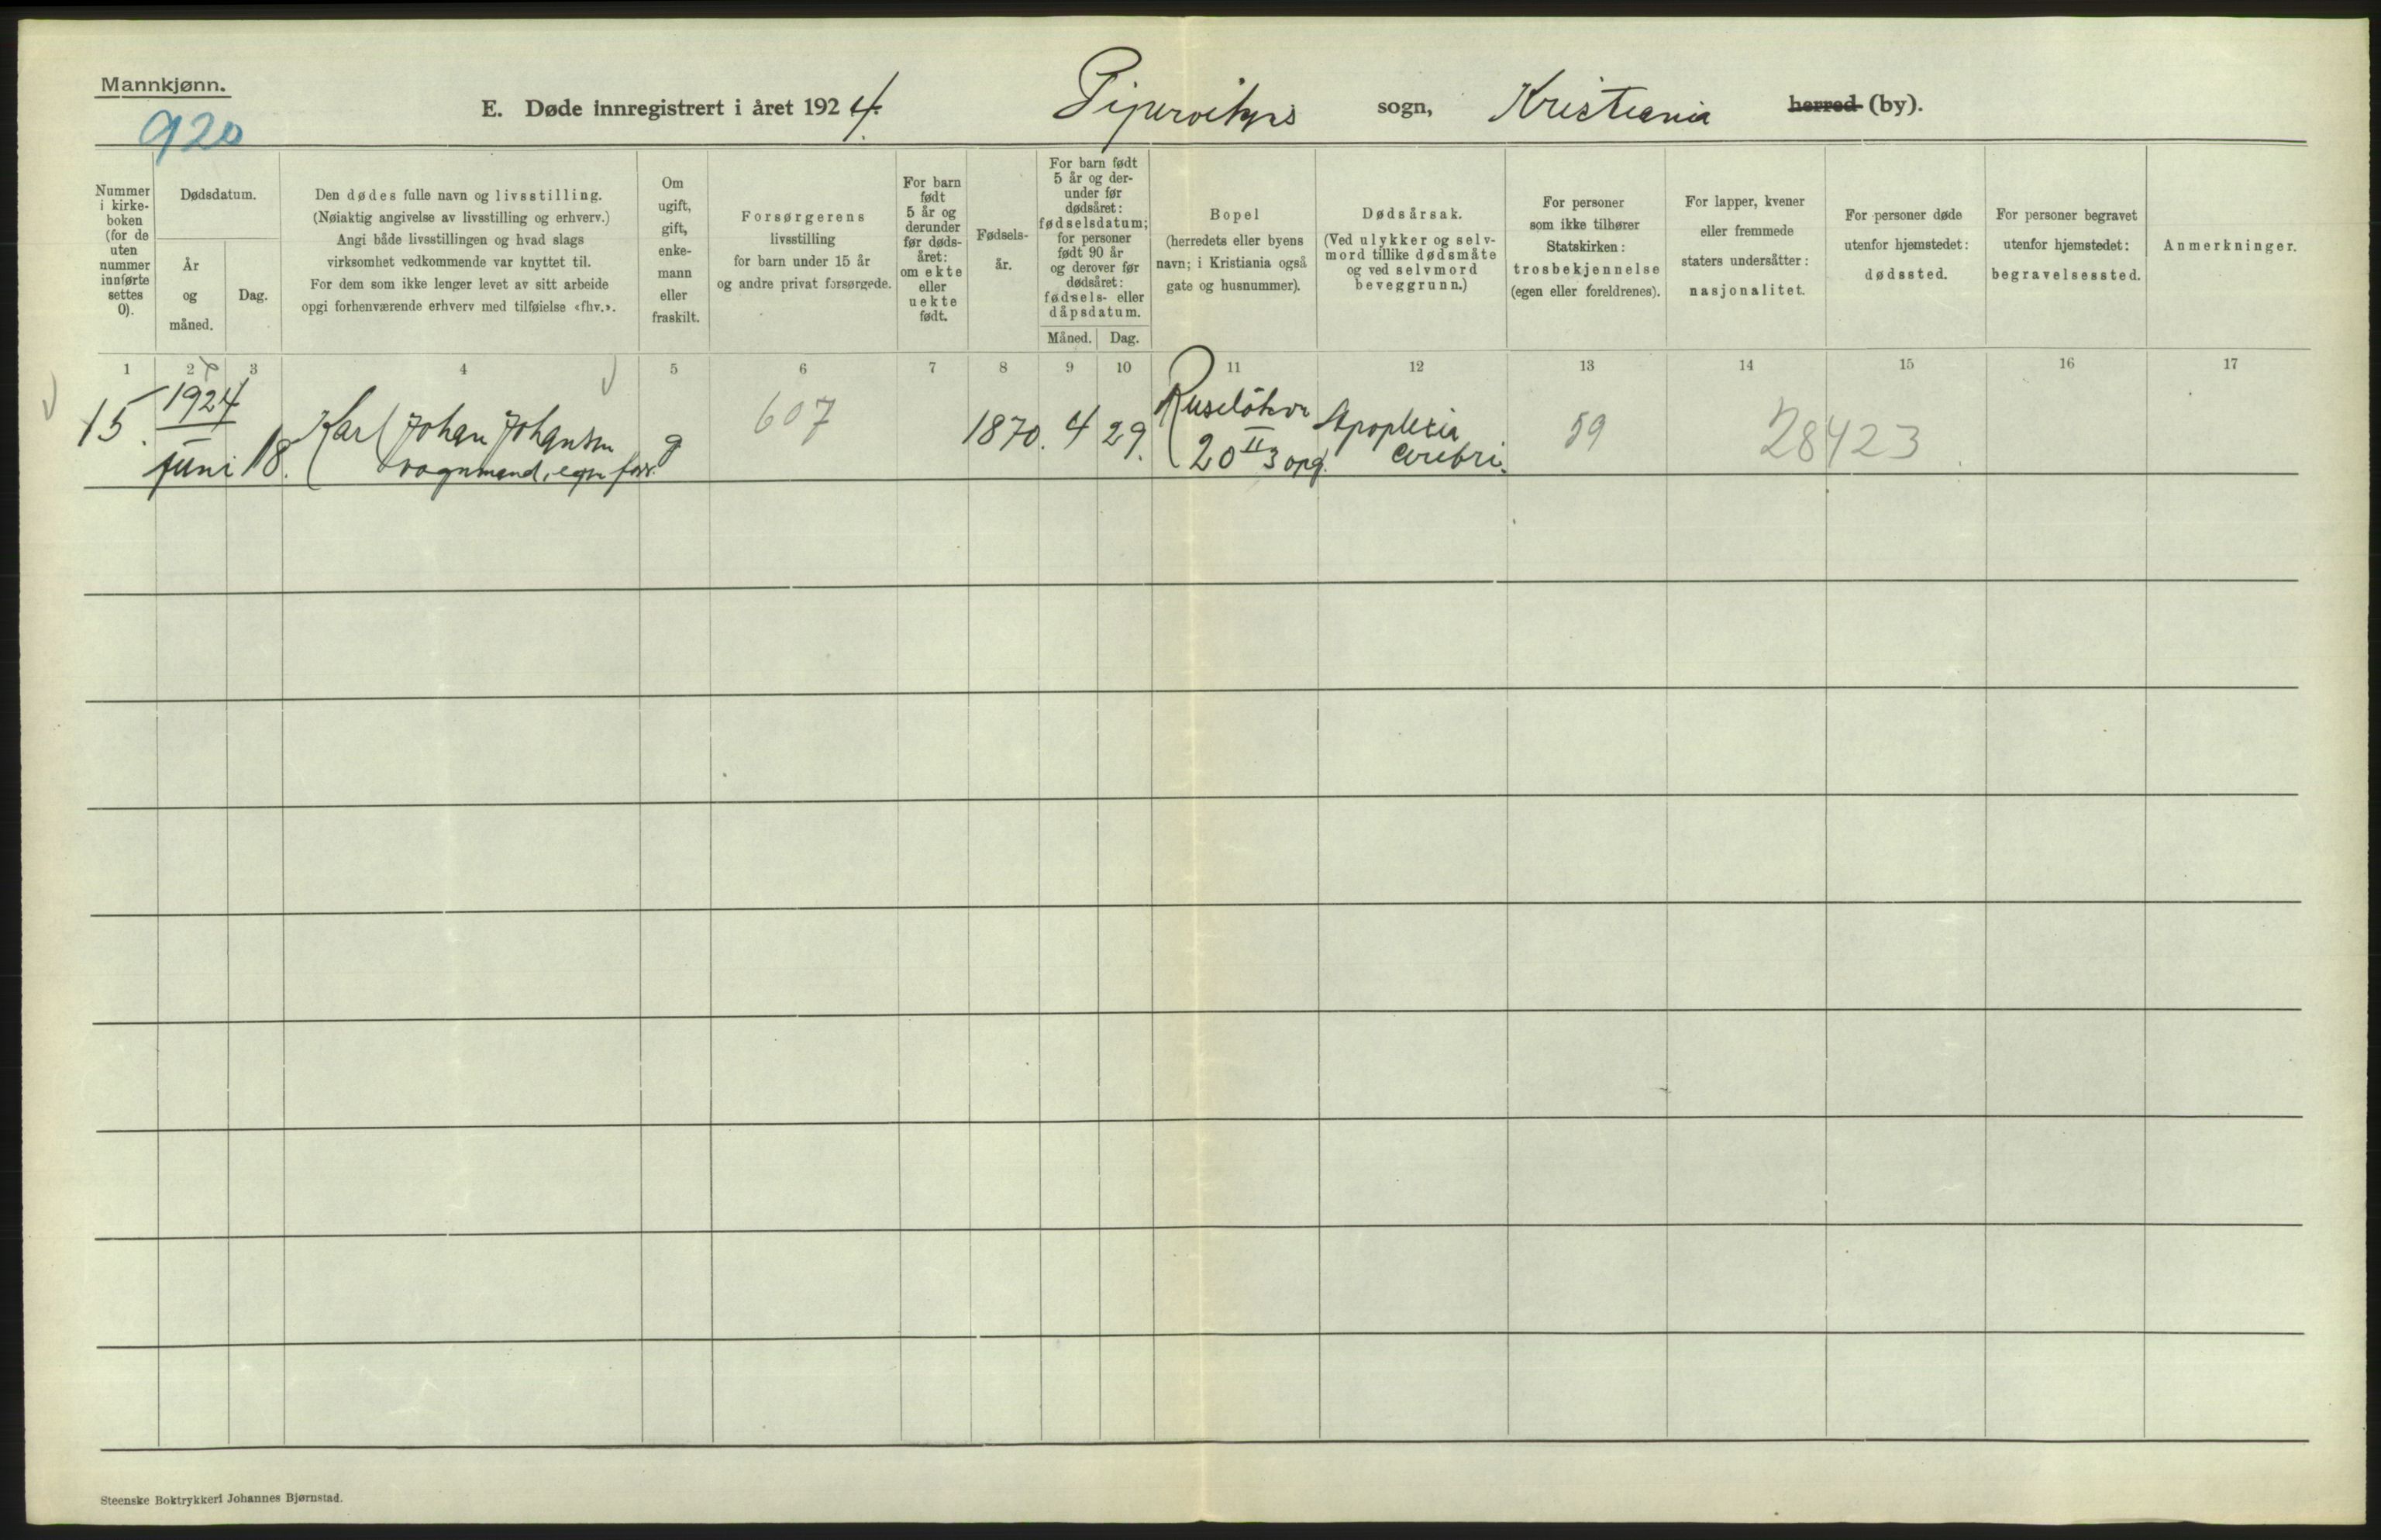 Mannkjønn.
920
E. Døde innregistrert i året 1924.
Pipervikens sogn, Kristiania herred (by).
Nummer
i kirke-
boken
(for de
uten
nummer
innførte
settes
0).
Dødsdatum.
År
og
måned.
Dag.
Den dødes fulle navn og livsstilling.
(Nøiaktig angivelse av livsstilling og erhverv.)
Angi både livsstillingen og hvad slags
virksomhet vedkommende var knyttet til.
For dem som ikke lenger levet av sitt arbeide
opgi forhenværende erhverv med tilføielse «fhv.».
Om
ugift,
gift,
enke-
mann
eller
fraskilt.
Forsørgerens
livsstilling
for barn under 15 år
og andre privat forsørgede.
For barn
født
5 år og
derunder
før døds-
året:
om ekte
eller
uekte
født.
Fødsels-
år.
For barn født
5 år og der-
under før
dødsåret:
fødselsdatum;
for personer
født 90 år
og derover før
dødsåret:
fødsels- eller
dåpsdatum.
Måned. Dag.
Bopel
(herredets eller byens
navn; i Kristiania også
gate og husnummer).
Dødsårsak.
(Ved ulykker og selv-
mord tillike dødsmåte
og ved selvmord
beveggrunn.)
For personer
som ikke tilhører
Statskirken:
trosbekjennelse
(egen eller foreldrenes).
For lapper, kvener
eller fremmede
staters undersåtter:
nasjonalitet.
For personer døde
utenfor hjemstedet:
dødssted.
For personer begravet
utenfor hjemstedet:
begravelsessted.
Anmerkninger.
1 2 3 4 5 6 7 8 9 10 11 12 13 14 15 16 17
15.
1924
juni
18.
Karl Johan Johansen
vognmand, egen forr.
g
607
1870.
4
29.
20 II 3 opg.
Apoplexia
cerebri.
59
28423
Steenske Boktrykkeri Johannes Bjørnstad.